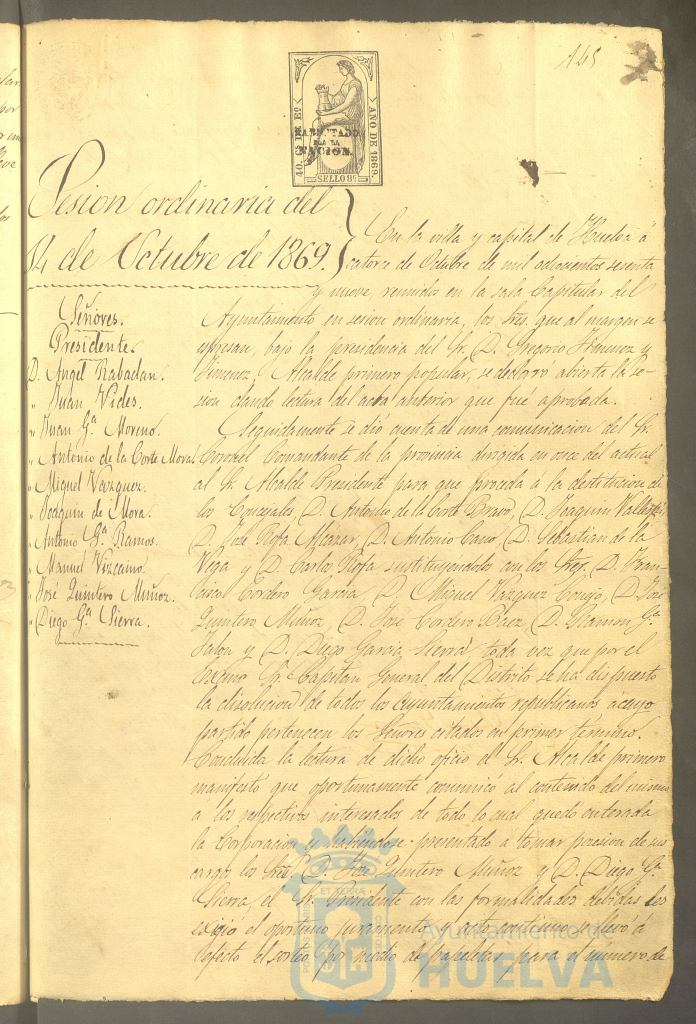 145
40. C.S DE Eº
AÑO DE 1869.
HABILITADO
POR LA
NACION.
SELLO 8º
Sesion ordinaria del
14 de Octubre de 1869.
Señores.
Presidente.
D. Angel Rabadan.
" Juan Vides.
" Juan Gª Moreno.
" Antonio de la Corte Mora.
" Miguel Vazquez.
" Joaquin de Mora.
" Antonio Gª Ramos.
" Manuel Vizcaino.
" José Quintero Muñoz.
" Diego Gª Sierra.
En la villa y capital de Huelva á
catorce de Octubre de mil ochocientos sesenta
y nueve, reunidos en la sala Capitular del
Ayuntamiento en sesion ordinaria, los Sres. que al margen se
espresan, bajo la presidencia del Sr. D. Gregorio Jimenez y
Jimenez, Alcalde primero popular, se declaró abierta la se-
sion dando lectura del acta anterior que fué aprobada.
Seguidamente se dió cuenta de una comunicacion del Sr.
Coronel Comandante de la provincia dirigida en once del actual
al Sr. Alcalde Presidente para que proceda a la destitucion de
los Concejales D. Antonio de la Corte Bravo, D. Joaquin
D. José Rofa Alcazar, D. Antonio Cano, D. Sebastian de la
Vega y D. Carlos Rofa sustituyendolos con los Sres. D. Fran-
cisco Cordero Garcia, D. Miguel Vazquez Conejo, D. José
Quintero Muñoz, D. José Cordero Baez, D. Ramon Gª
Jalon y D. Diego Garcia Sierra, toda vez que por el
Excmo Sr. Capitan General del Distrito se ha dispuesto
la disolucion de todos los Ayuntamientos republicanos á cuyo
partido pertenecen los Señores citados en primer término.
Concluida la lectura de dicho oficio el Sr. Alcalde primero
manifestó que oportunamente comunicó el contenido del mismo
a los respectivos interesados de todo lo cual quedó enterada
la Corporacion y habiendose presentado a tomar posesion de sus
cargos los Sres. D. José Quintero Muñoz y D. Diego Gª
Sierra, el Sr. Presidente con las formalidades debidas les
exigió el oportuno juramento y acto continuo se llevó á
efecto el sorteo por medio de papeletas para el numero de
Ayuntamiento de
HUELVA